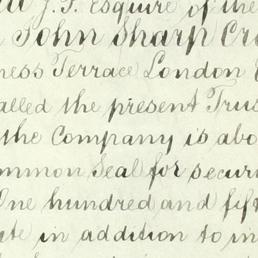 J.P. Esquire of the
John Sharp Cr
ness Terrace London
alled the present Trus
the Company is abo
ommon Seal for securi
One hundred and fift
te in addition to in